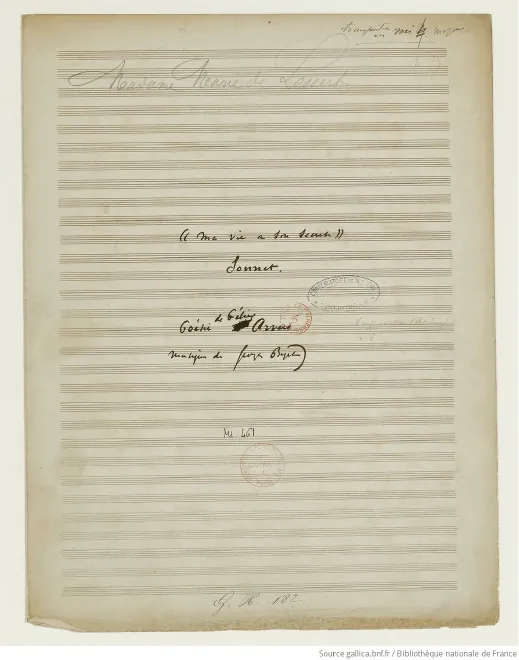 Madame Marie de
« Ma vie a son secret »
Sonnet.
Poésie de Félix Arvers
Musique de Georges Bizet
Ms. 461
G. H. 182
Source gallica.bnf.fr / Bibliothèque nationale de France